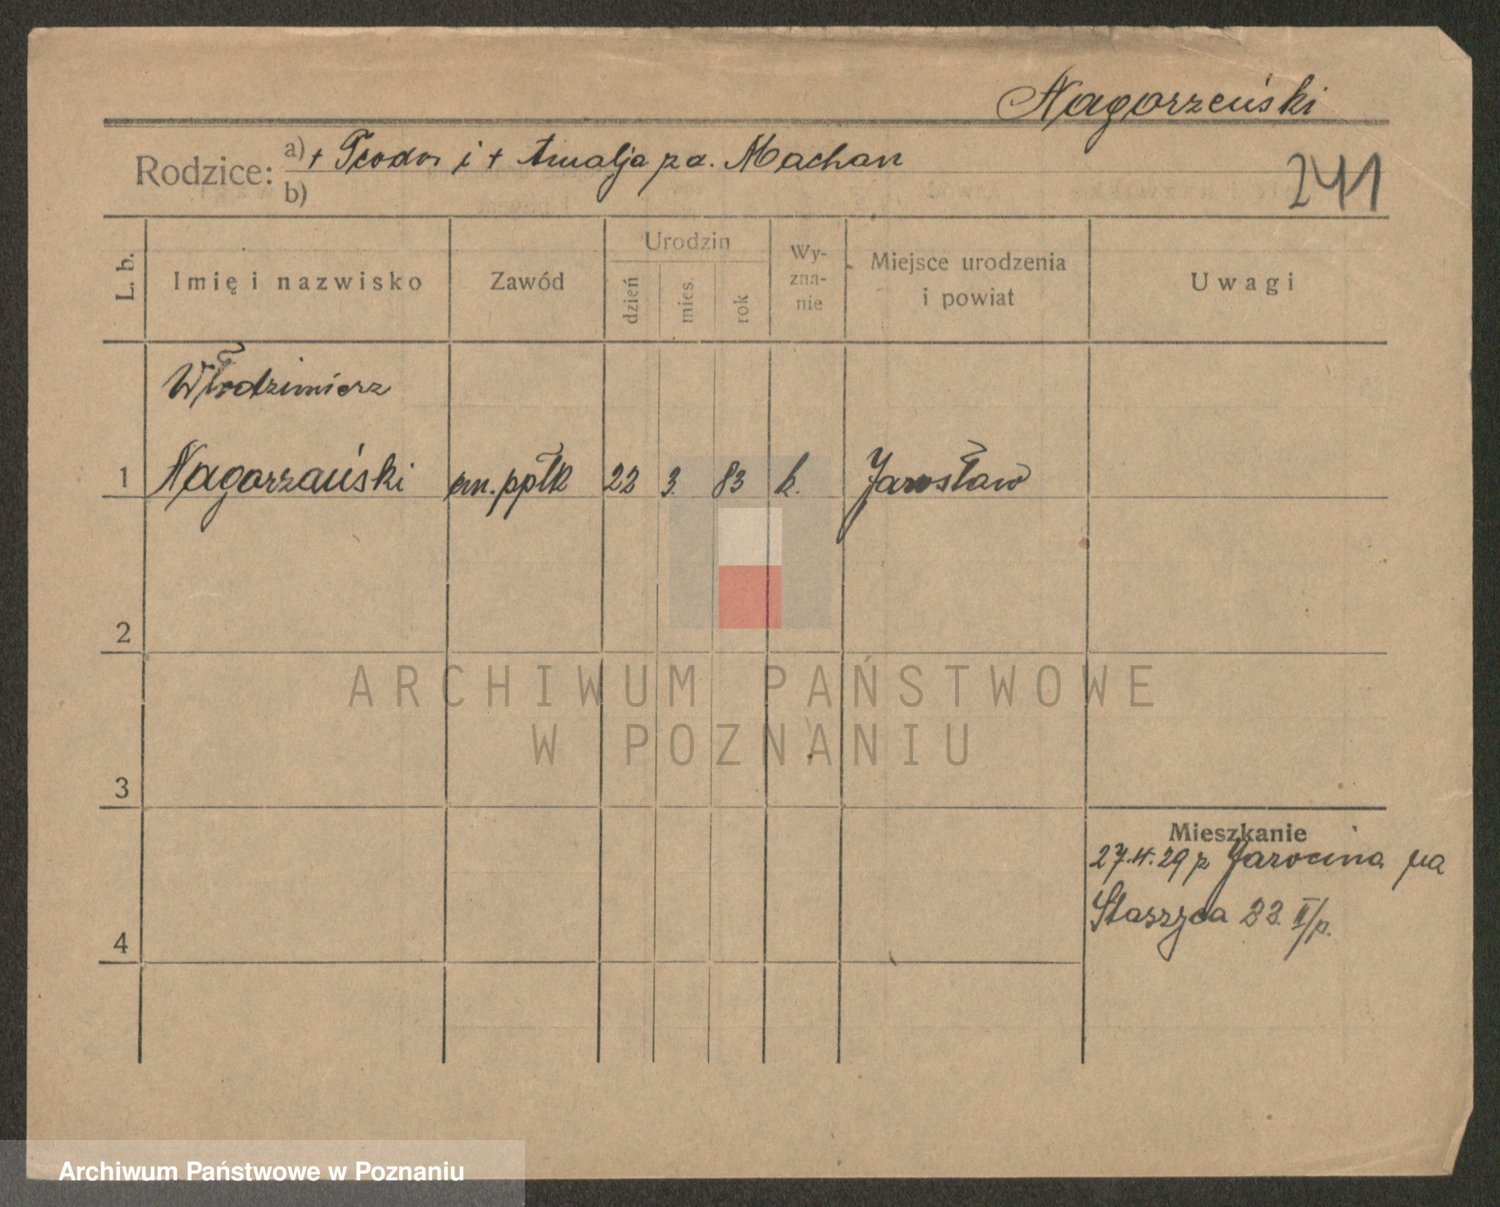 Nagorzeński
Rodzice: a) + Teodor i + Amalja z d. Machan
b)
241
L. b. Imię i nazwisko Zawód Urodzin dzień mies. rok Wy-zna-nie Miejsce urodzenia i powiat Uwagi
Włodzimierz
1 Nagorzański em. ppłk 22 3. 83 k. Jarosław
2
ARCHIWUM PAŃSTWOWE
W POZNANIU
3
Mieszkanie
27.4.29 z Jarocina na
Staszyca 23. II/p.
4
Archiwum Państwowe w Poznaniu